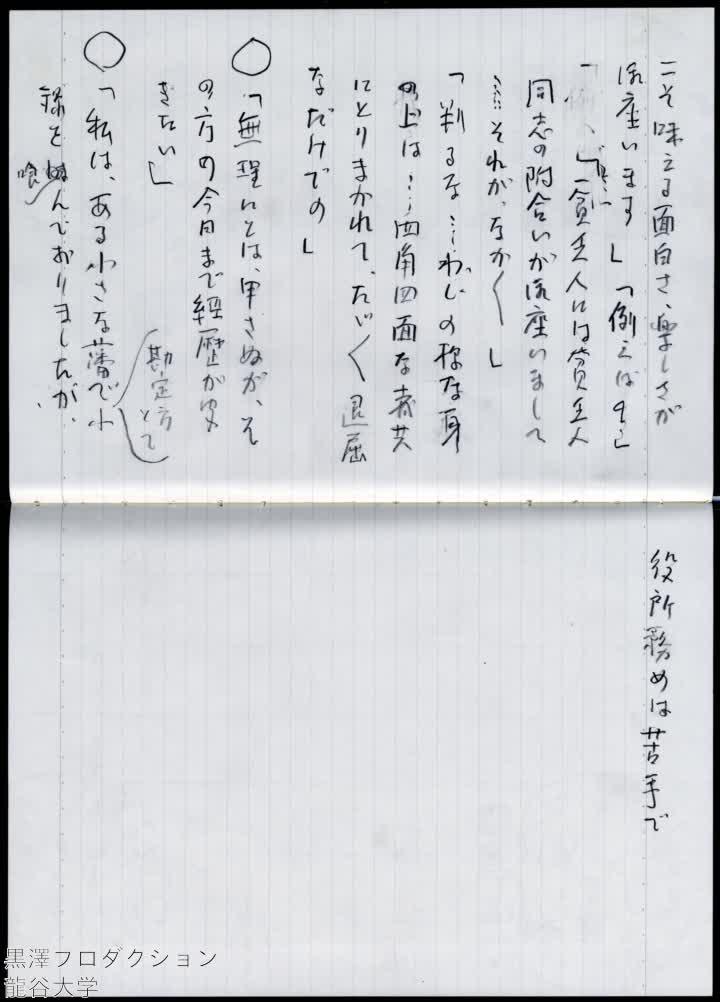 こそ味える面白さ、楽しさが
御座います」「例えば？」
「貧乏人には貧乏人
同志の附合いが御座いまして
……それが、なか〱」
「判るな……わしの様な身
の上は……四角四面な者共
にとりまかれて、たゞ〱退屈
なだけでの」
◯「無理にとは、申さぬが、そ
の方の今日まで経歴がゆ
きたい」
勘定方
とて
◯「私は、ある小さな藩で小
録を
喰んでおりましたが、
役所務めは苦手で
黒澤プロダクション
龍谷大学